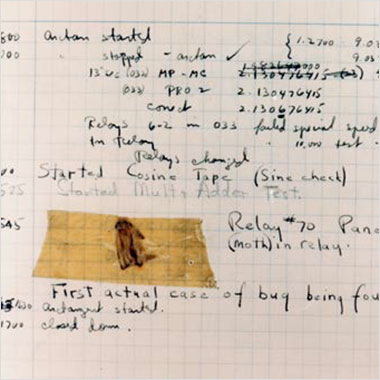 800 Antan started { 1.2700 9.03
" stopped - antan ✓ 9.03
13" UC (032) MP - MC 2.130476415
(033) PRO 2 2.130476415
convd 2.130676415
Relays 6-2 in 033 failed special speed
In Relay " 10,000 test.
Relays changed
Started Cosine Tape (Sine check)
1525 Started Mult + Adder Test.
545 Relay #70 Pane
(moth) in relay.
First actual case of bug being fou
antangent started.
1700 closed down.